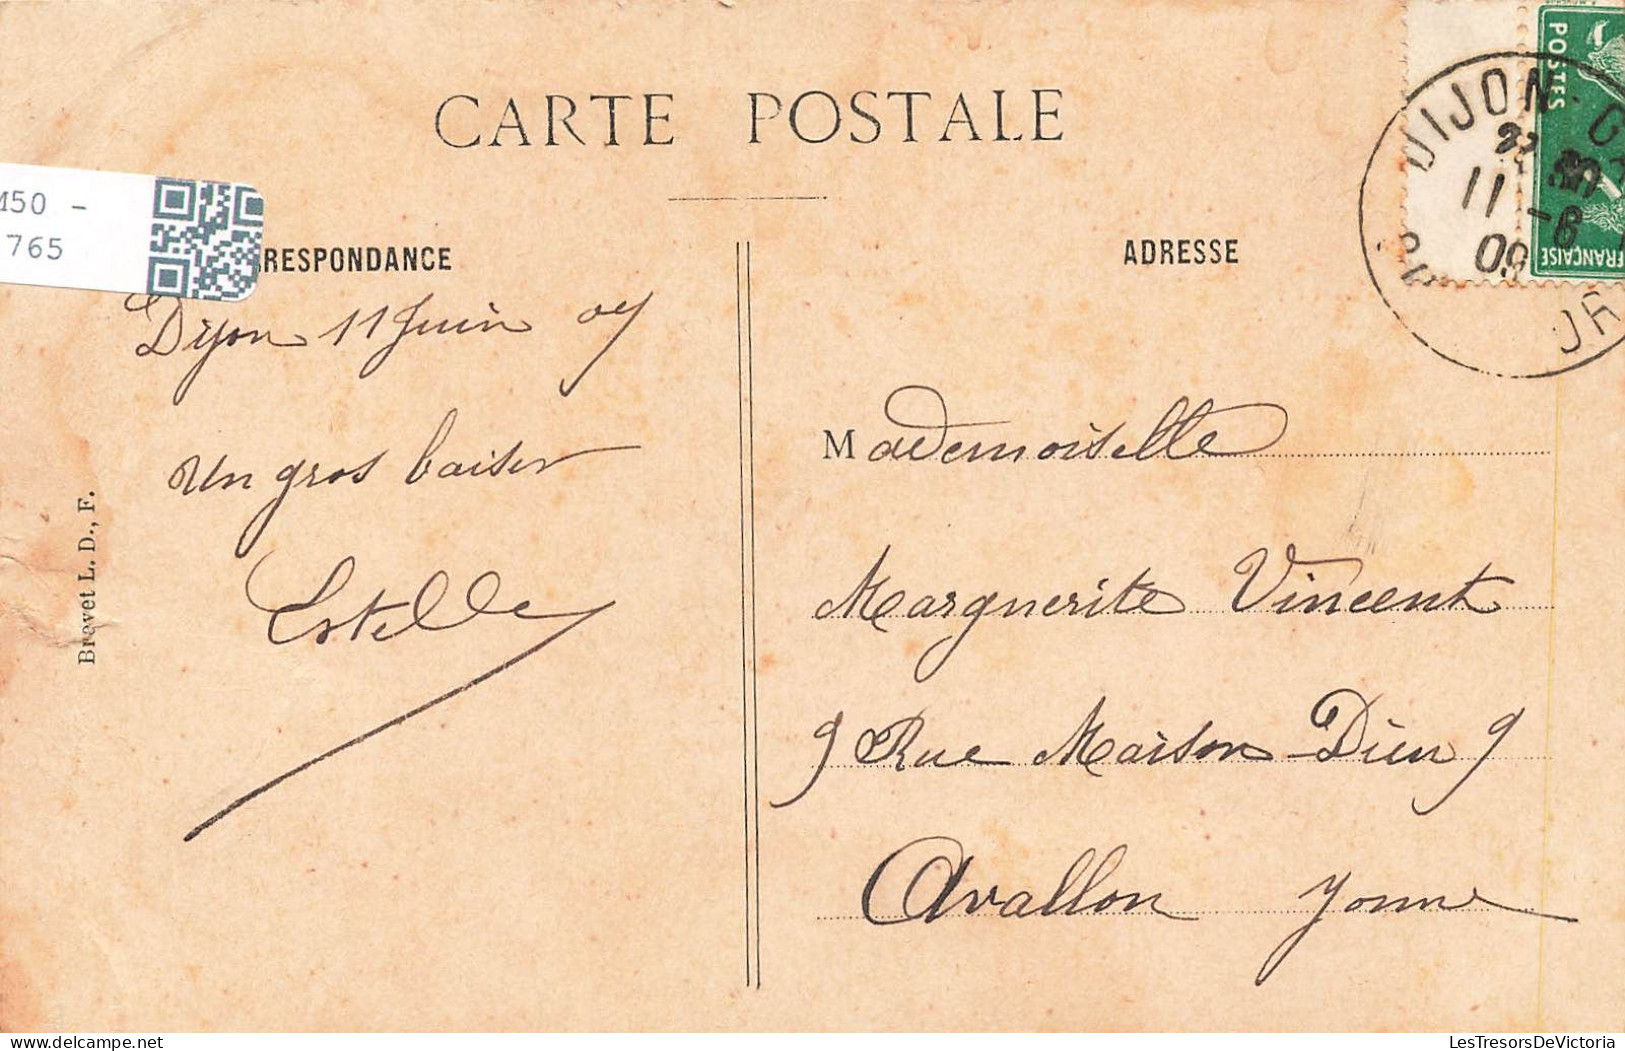 CARTE POSTALE
M50 -
765
RRESPONDANCE
ADRESSE
POSTES
FRANÇAISE
DIJON
11 -6
09
Dijon 11 Juin 09
un gros baiser
Estelle
Mademoiselle
Marguerite Vincent
9 Rue Maison Dieu 9
Avallon Yonne
Brevet L. D., F.
LesTresorsDeVictoria